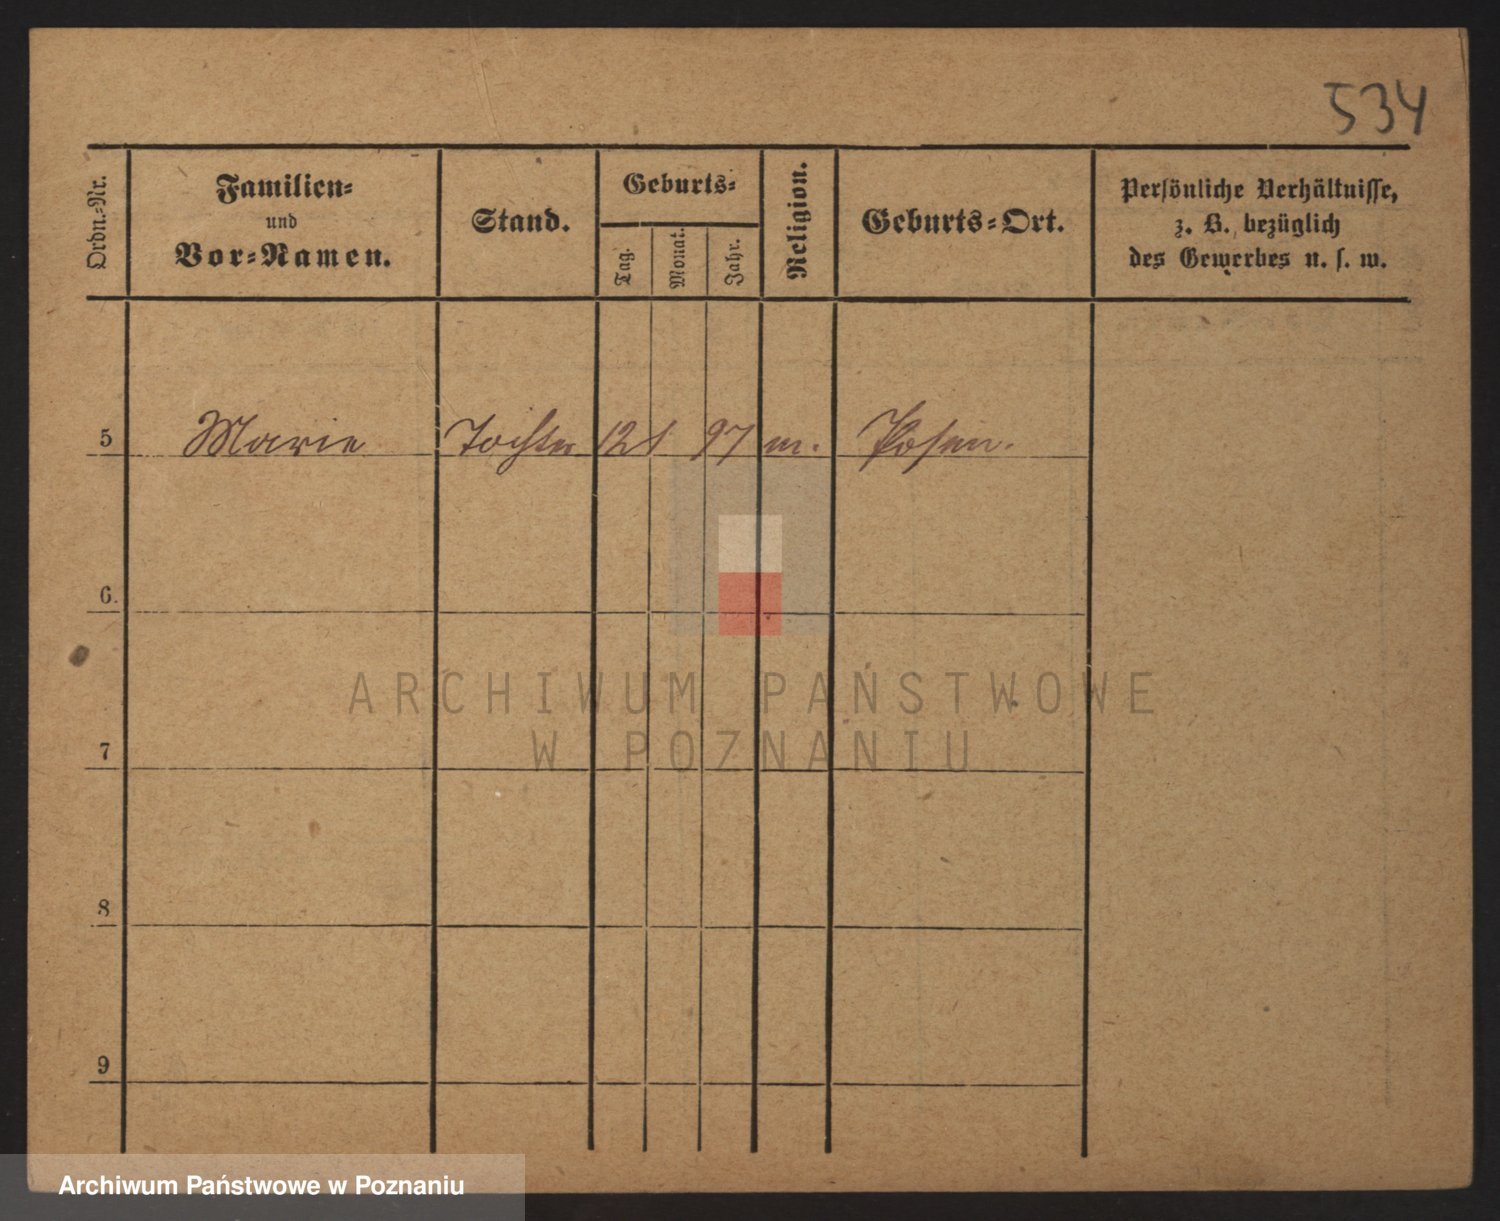 534
Ordn.-Nr.
Familien-
und
Vor-Namen.
Stand.
Geburts-
Tag.
Monat.
Jahr.
Religion.
Geburts-Ort.
Persönliche Verhältnisse,
z. B. bezüglich
des Gewerbes u. s. w.
5 Marie Tochter 12 1 97 m. Posen.
6.
7
8
9
ARCHIWUM PAŃSTWOWE
W POZNANIU
Archiwum Państwowe w Poznaniu